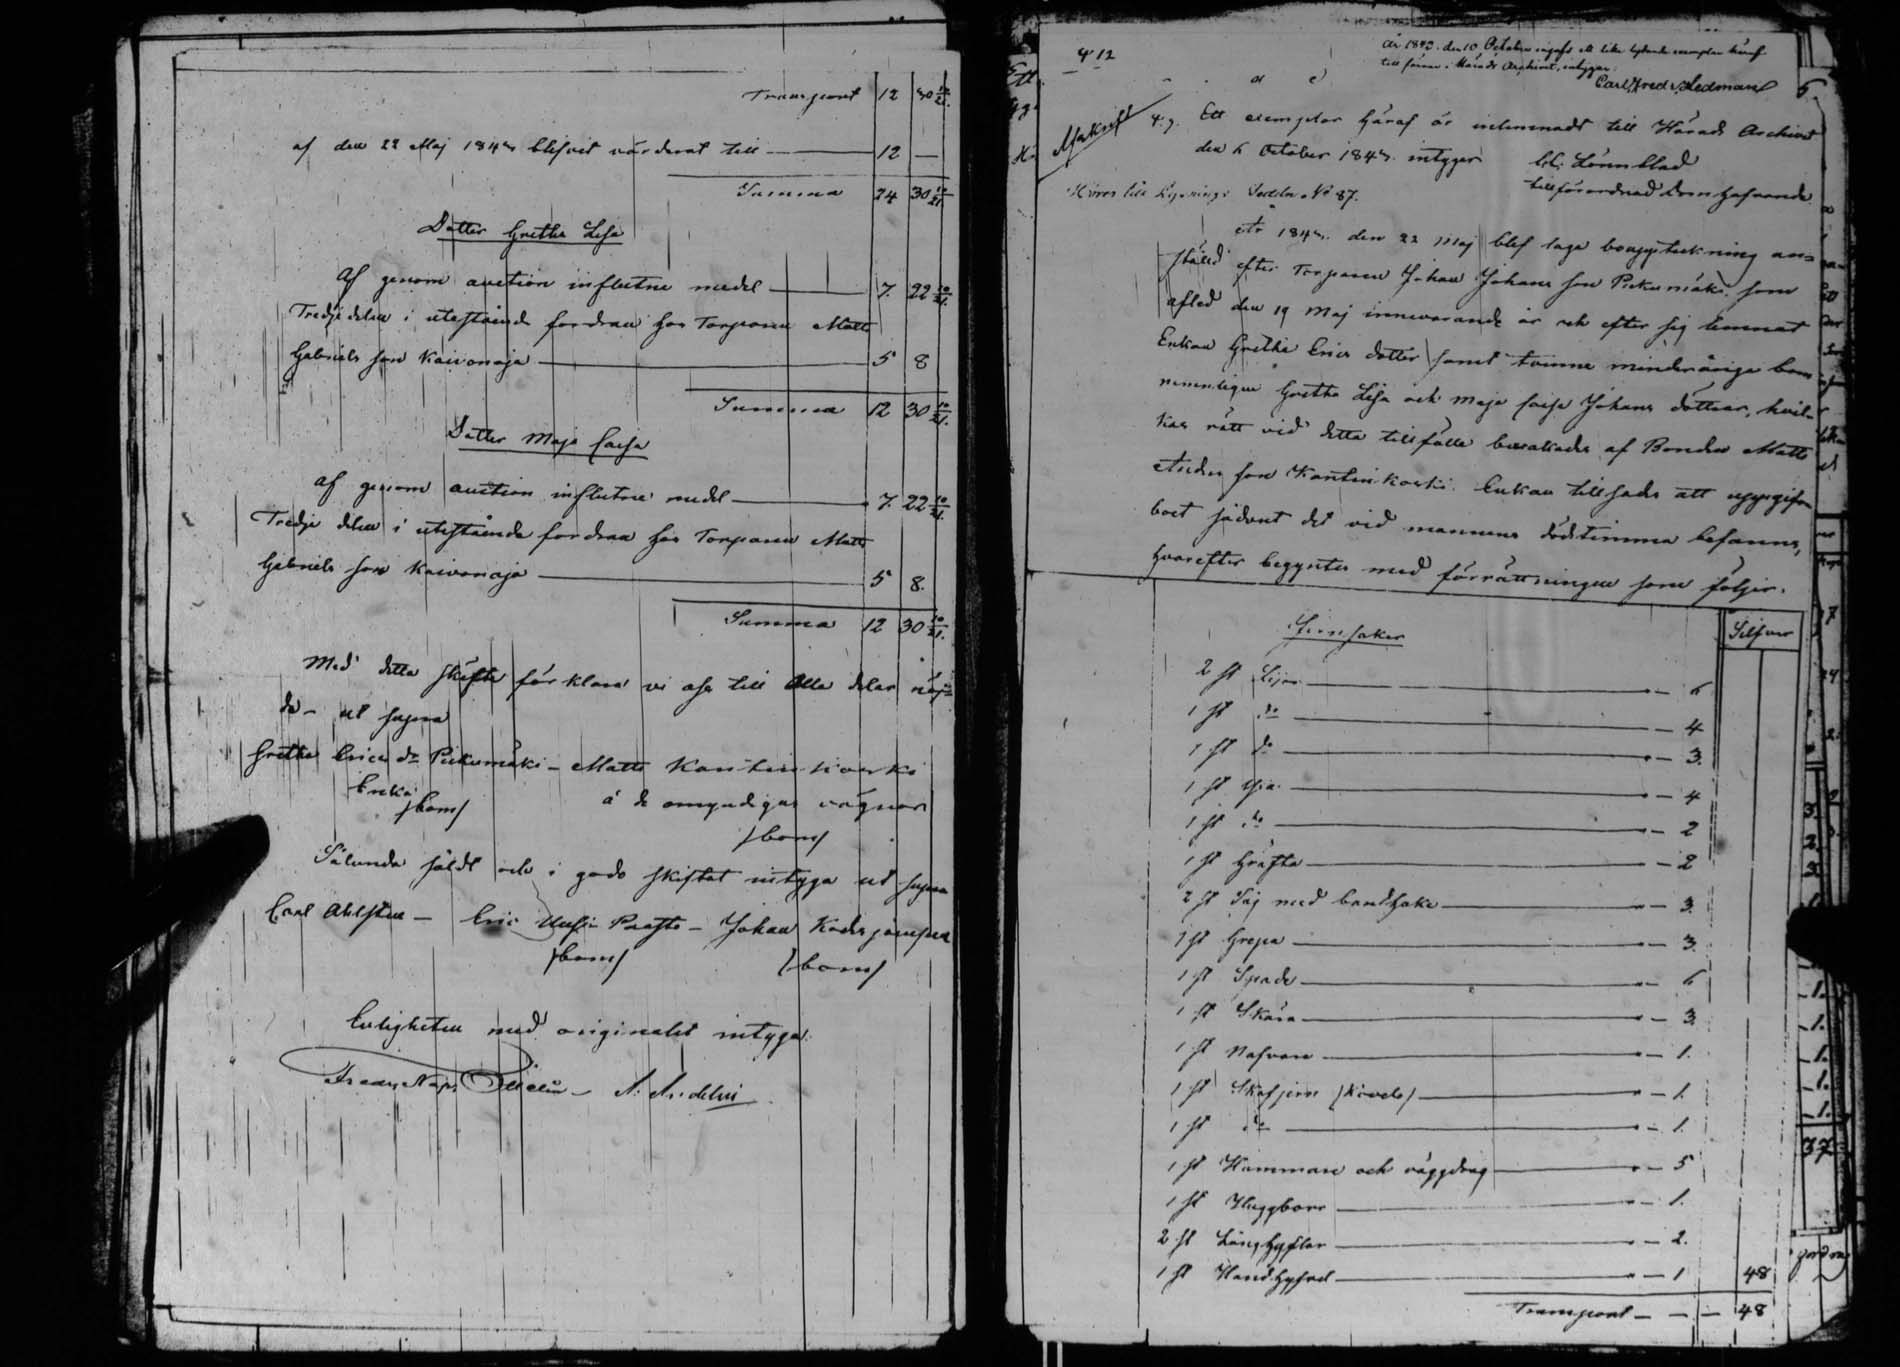 Transport 12 30 10/21.
af den 22 Maj 184 blifvit värderat till 12 —
Summa 24 30 10/21.
Dotter Gretha Lisa
Af genom auction influtne medel 7. 22 10/21.
Tredjedelen i utestående fordran hos Torparen Matts
Gabriels son Kaivonoja 5 8
Summa 12 30 10/21.
Dotter Maja Caisa
Af genom auction influtne medel 7. 22 10/21.
Tredje delen i utestående fordran hos Torparen Matts
Gabriels son Kaivonoja 5 8.
Summa 12 30 10/21.
Med detta skifte förklara vi oss till alla delar nöj-
de — ut supra
Gretha Erics dr Pickumäki — Matts Kantinkoski
Enka å de omyndigas vägnar
/bom/
/bom/
Sålunda såldt och i godo skiftat intyga ut supra
Carl Ahlsten — Eric Uusi Prasto — Johan
/bom/ /bom/
Enligheten med originalet intyga.
4 12
År 1843. den 10 October ingafs ett lika lydande exemplar häraf
till förvar i Härads Archivet, intygar.
Carl Fred. Hedman
5.
Afskrift
Ett exemplar häraf är inlemnadt till Härads Archivet
den October 184 intygar Lönnblad
tillförordnad Domhafvande
Höres till Lysnings Sedeln No 87.
År 184 den 22 Maj blef laga bouppteckning an-
ställd efter Torparen Johan Johans son Pickumäki som
afled den 19 Maj innevarande år och efter sig lemnat
Enkan Gretha Erics dotter samt tvenne minderåriga barn
nemligen Gretha Lisa och Maja Caisa Johans döttrar, hvil-
kas rätt vid detta tillfälle bevakades af Bonden Matts
Anders son Kantinkoski. Enkan tillsades att uppgifva
boet sådant det vid mannens dödstimma befanns,
hvarefter begyntes med förrättningen som följer.
Silfver
Jernsaker
2 st Lijor — 6
1 st do — 4
1 st do — 3.
1 st Yxa — 4
1 st do — 2
1 st Gräfta — 2
2 st Såg med bandhake — 3.
1 st Grepa — 3.
1 st Spade — 6
1 st Skära — 3
1 st Nafvare — 1.
1 st Skafjern /Kivels/ — 1.
1 st do — 1.
1 st Hammare och väggdrag — 5
1 st Huggborr — 1.
2 st Långhyflar — 2.
1 st Handhyfvel — 1 48
Transport — — — 48